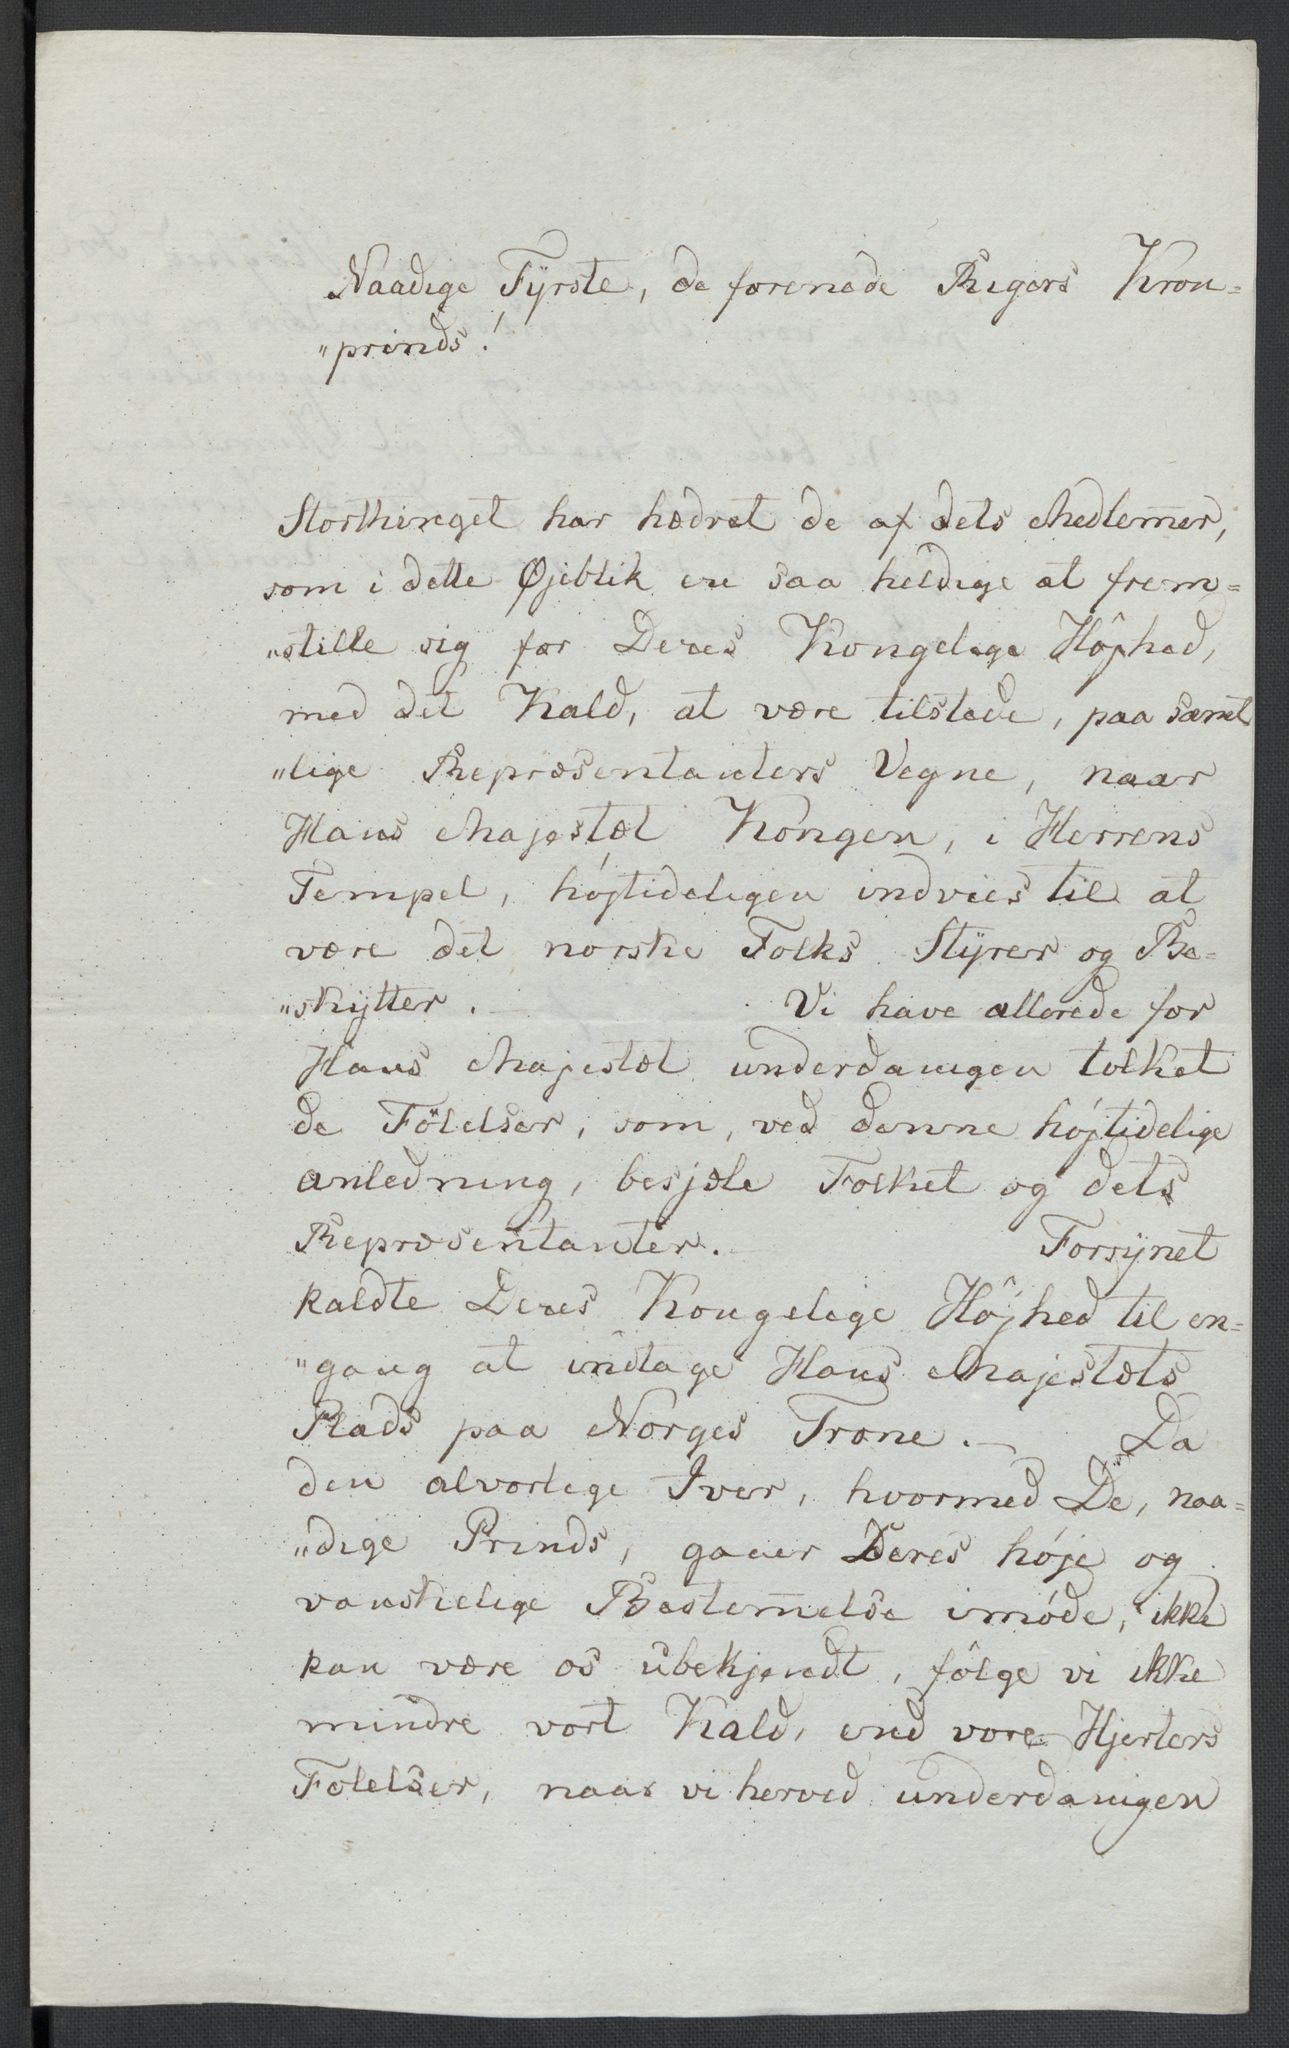 Naadige Fÿrste, de forenede Rigers Kron=
"prinds!
Storthinget har hædret de af dets Medlem̅er,
som i dette Øjeblik ere saa heldige at frem=
"stille sig for Deres Kongelige Höjhed,
med det Kald, at være tilstede, paa sam̅t
"lige Repræsentanters Vegne, naar
Hans Majestæt Kongen, i Herrens
Tempel, højtideligen indvies til at
være det norske Folks Stÿrer og Be=
"skÿtter. Vi have allerede for
Hans Majestæt underdanigen tolket
de Fölelser, som, ved denne højtidelige
anledning, besjæle Folket og dets
Repræsentanter. Forsÿnet
kaldte Deres Kongelige Höjhed til en=
"gang at indtage Hans Majestæts
Plads paa Norges Trone. — Da
den alvorlige Iver, hvormed De, naa=
"dige Prinds, gaaer Deres høje og
vanskelige Bestem̅else imøde, ikke
kan være os ubekjendt, fölge vi ikke
mindre vort Kald, end vore Hjerters
Folelser, naar vi herved underdanigen